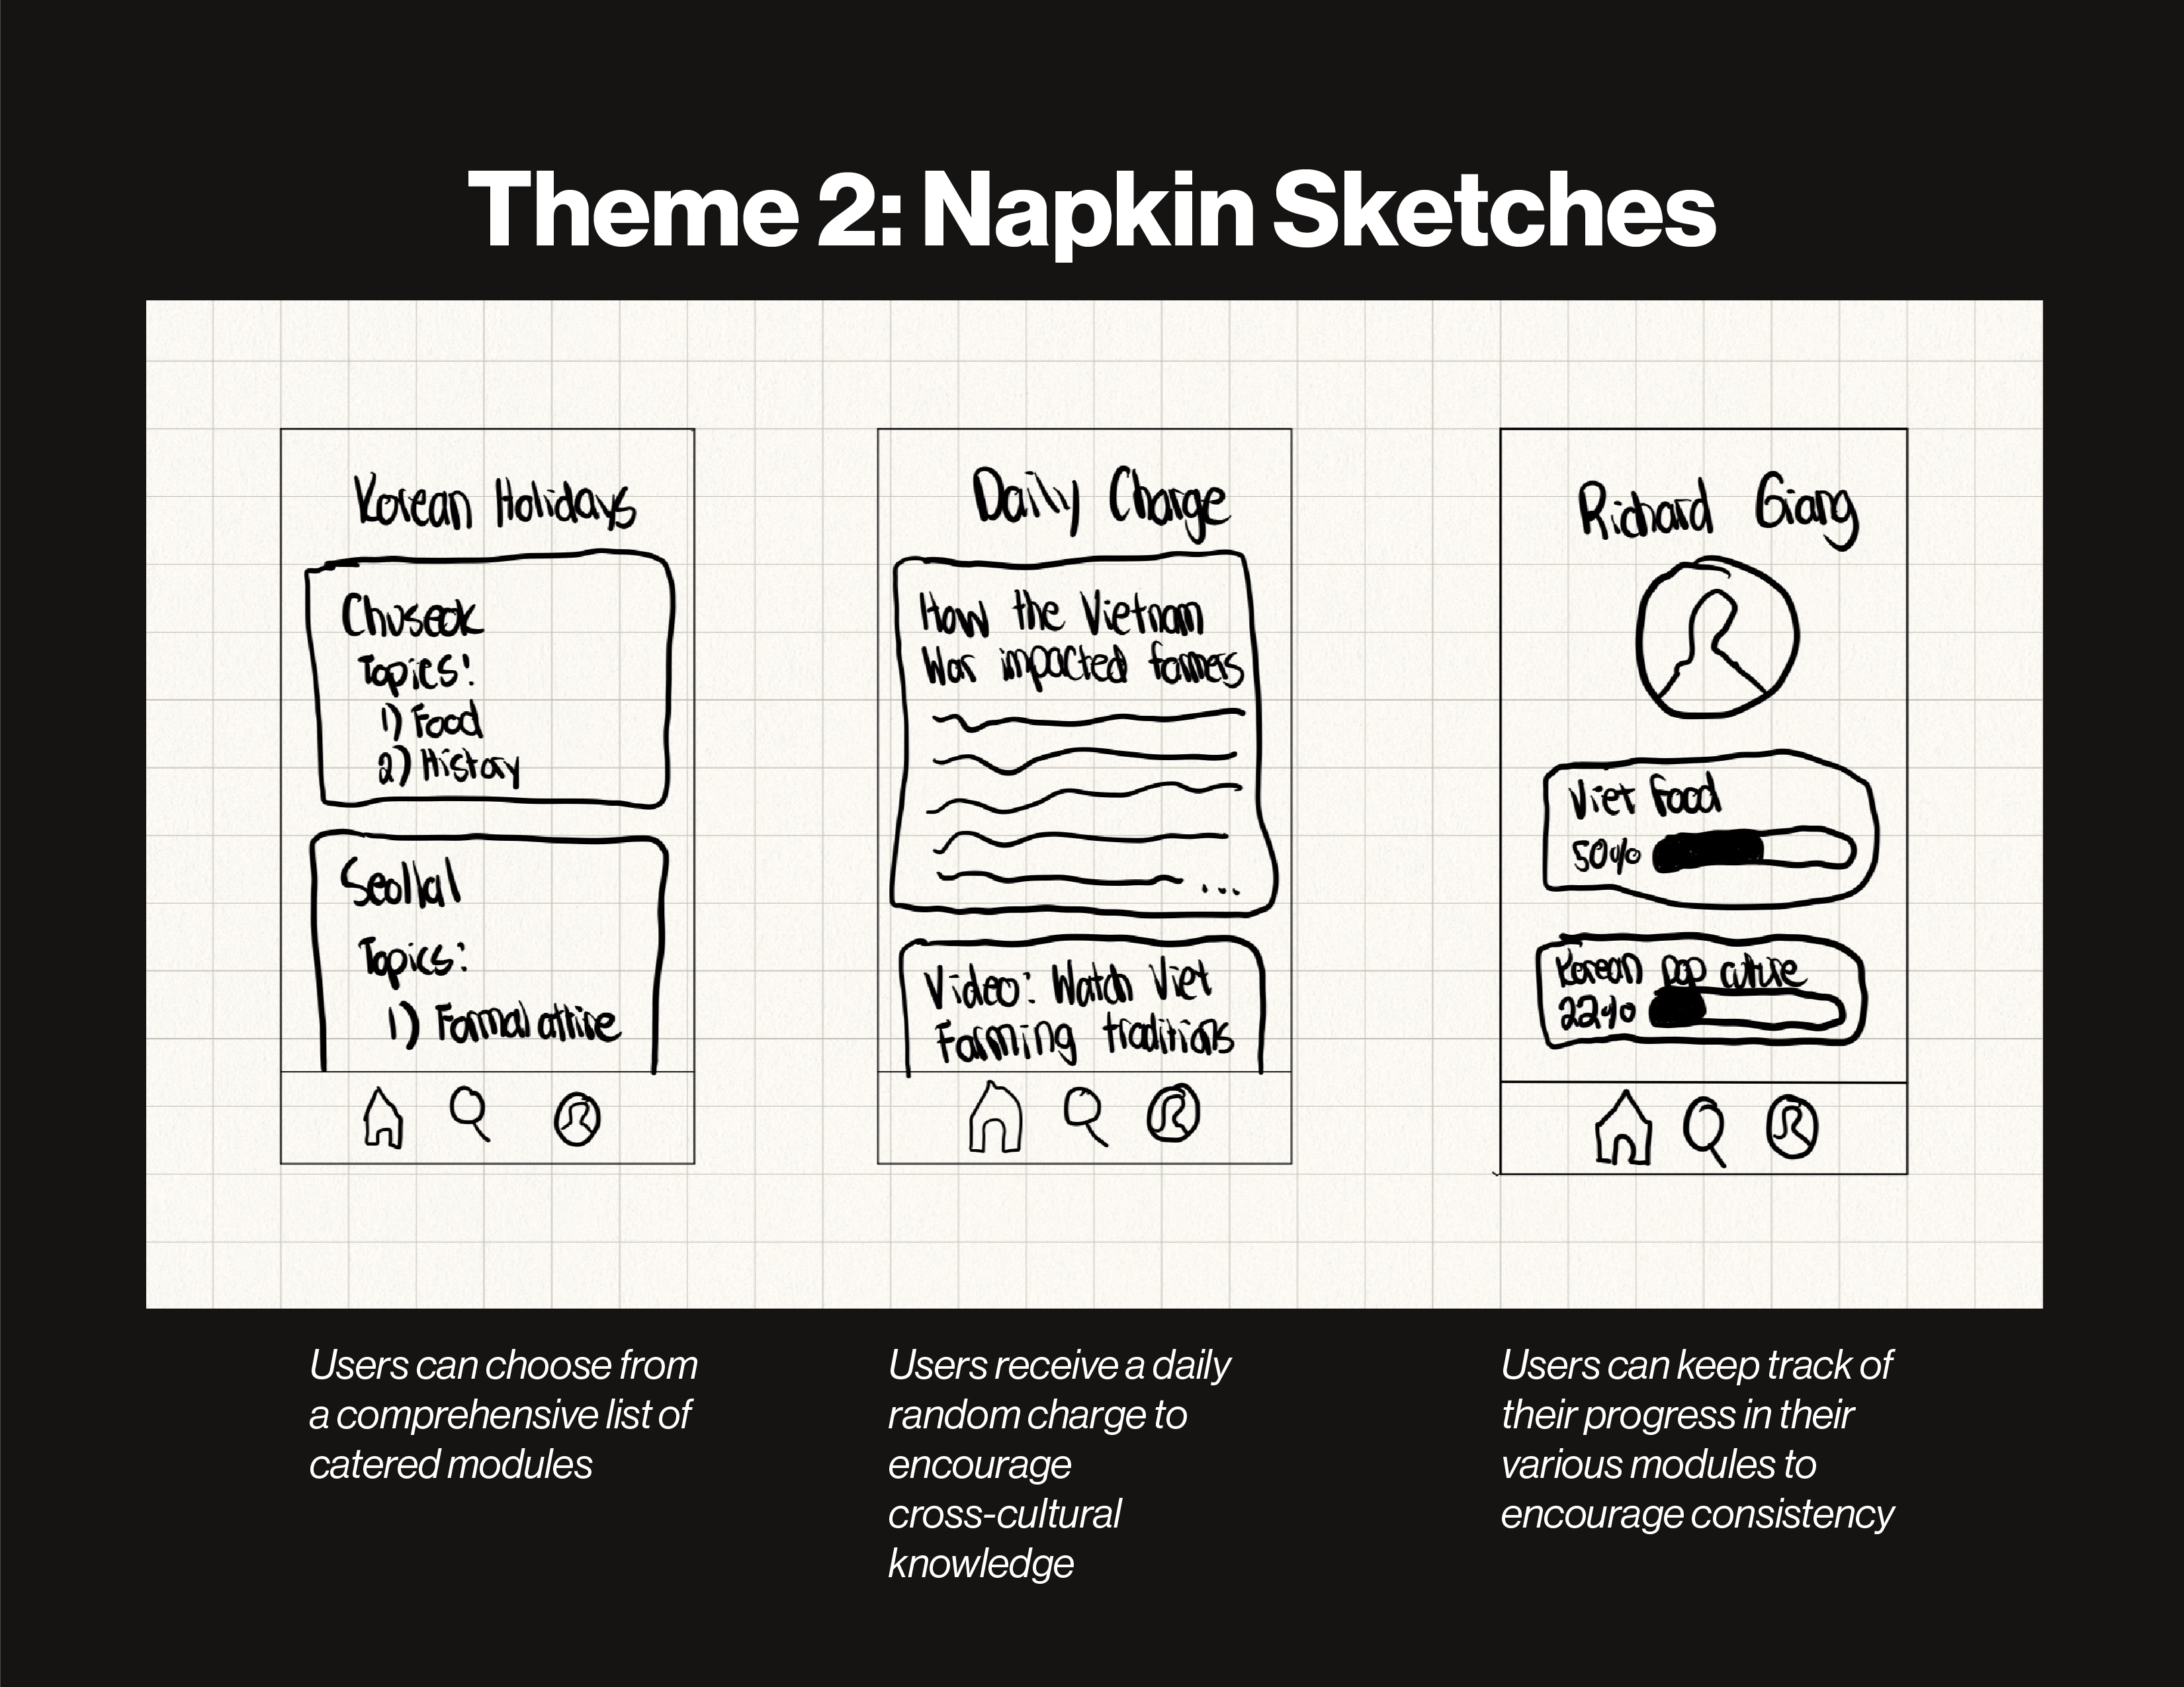 Theme 2: Napkin Sketches
Korean Holidays
Chuseok
Topics:
1) Food
2) History
Seollal
Topics:
1) Formal attire
Daily Charge
How the Vietnam
War impacted farmers
...
Video: Watch Viet
Farming traditions
Richard Giang
Viet Food
50%
Korean pop culture
22%
Users can choose from
a comprehensive list of
catered modules
Users receive a daily
random charge to
encourage
cross-cultural
knowledge
Users can keep track of
their progress in their
various modules to
encourage consistency